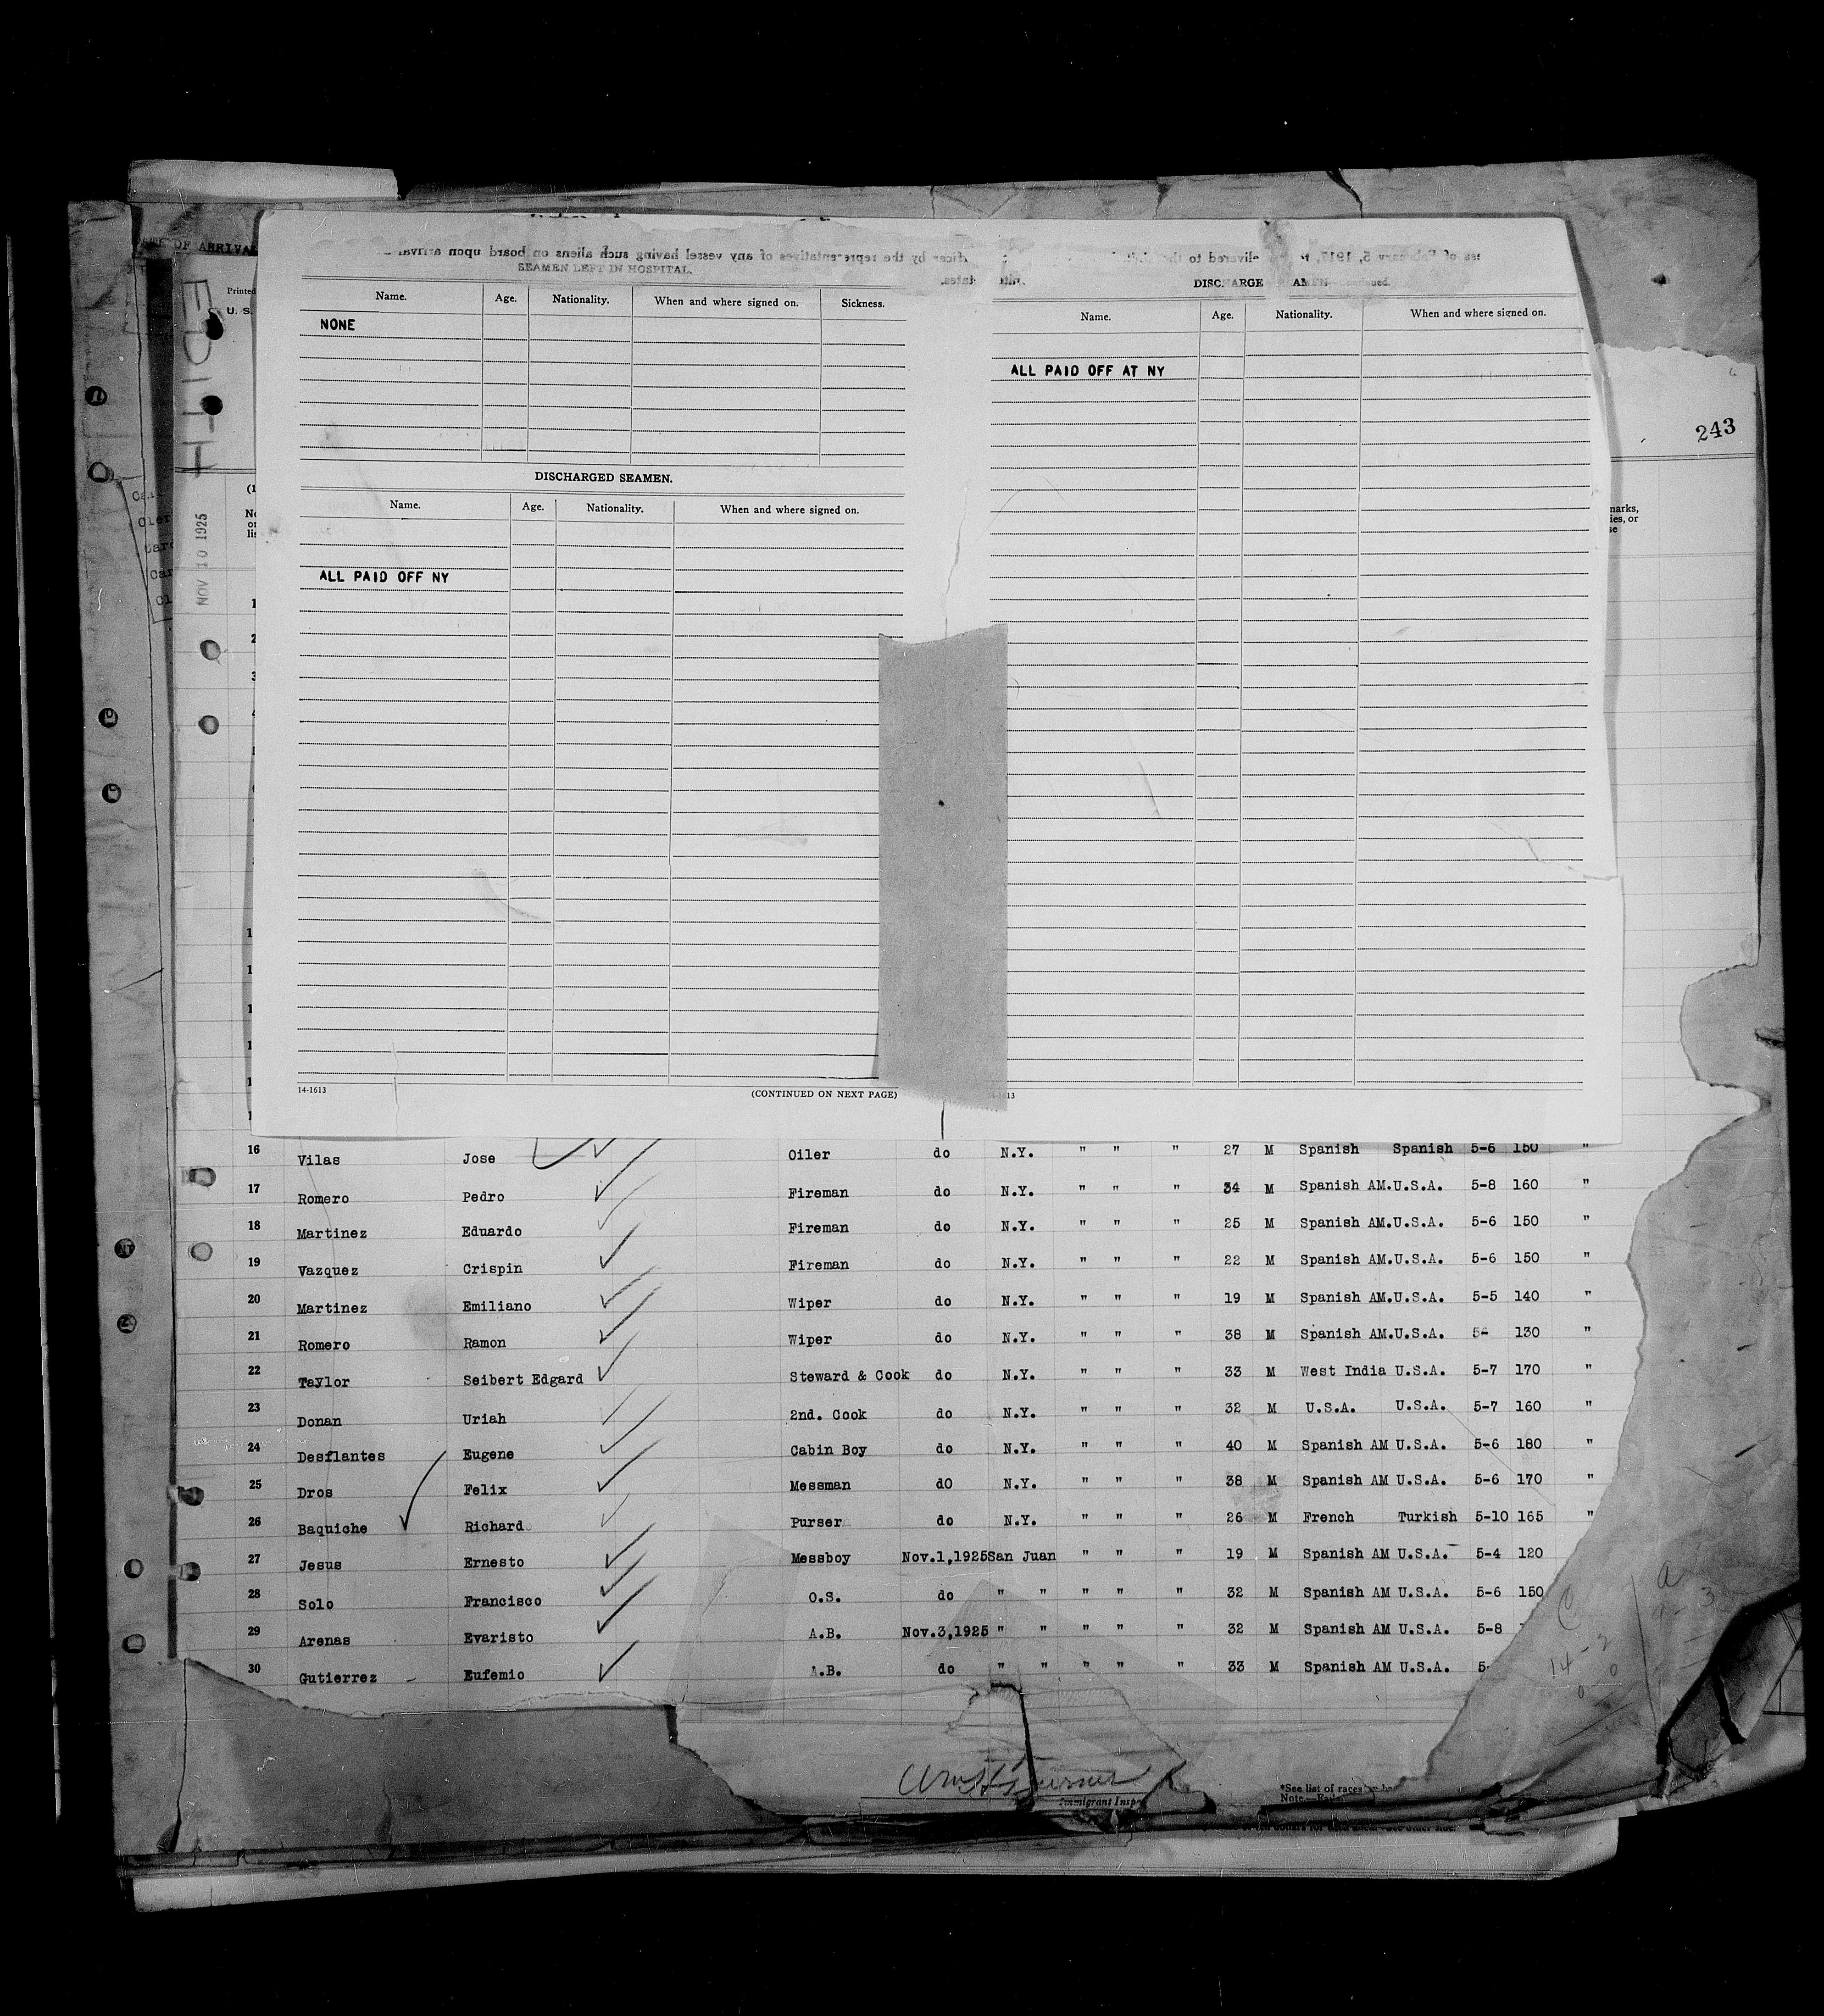 OF ARRIVAL
Printed
U. S.
EDITH
NOV 10 1925
243
SEAMEN LEFT IN HOSPITAL.
Name. Age. Nationality. When and where signed on. Sickness.
NONE
DISCHARGED SEAMEN.
Name. Age. Nationality. When and where signed on.
ALL PAID OFF NY
14-1613
(CONTINUED ON NEXT PAGE)
Name. Age. Nationality. When and where signed on.
ALL PAID OFF AT NY
16 Vilas Jose Oiler do N.Y. " " " 27 M Spanish Spanish 5-6 150 "
17 Romero Pedro Fireman do N.Y. " " " 34 M Spanish AM. U.S.A. 5-8 160 "
18 Martinez Eduardo Fireman do N.Y. " " " 25 M Spanish AM. U.S.A. 5-6 150 "
19 Vazquez Crispin Fireman do N.Y. " " " 22 M Spanish AM. U.S.A. 5-6 150 "
20 Martinez Emiliano Wiper do N.Y. " " " 19 M Spanish AM. U.S.A. 5-5 140 "
21 Romero Ramon Wiper do N.Y. " " " 38 M Spanish AM. U.S.A. 130 "
22 Taylor Seibert Edgard Steward & Cook do N.Y. " " 33 M West India U.S.A. 5-7 170 "
23 Donan Uriah 2nd. Cook do N.Y. " " " 32 M U.S.A. U.S.A. 5-7 160 "
24 Desflantes Eugene Cabin Boy do N.Y. " " " 40 M Spanish AM U.S.A. 5-6 180 "
25 Dros Felix Messman dO N.Y. " " " 38 M Spanish AM U.S.A. 5-6 170 "
26 Baquiche Richard Purser do N.Y. " " " 26 M French Turkish 5-10 165 "
27 Jesus Ernesto Messboy Nov.1,1925 San Juan " " " 19 M Spanish AM U.S.A. 5-4 120
28 Solo Francisco O.S. do " " " " " 32 M Spanish AM U.S.A. 5-6 150
29 Arenas Evaristo A.B. Nov.3,1925 " " " " " 32 M Spanish AM U.S.A. 5-8
30 Gutierrez Eufemio A.B. do " " " " " 33 M Spanish AM U.S.A.
Immigrant
*See list of races